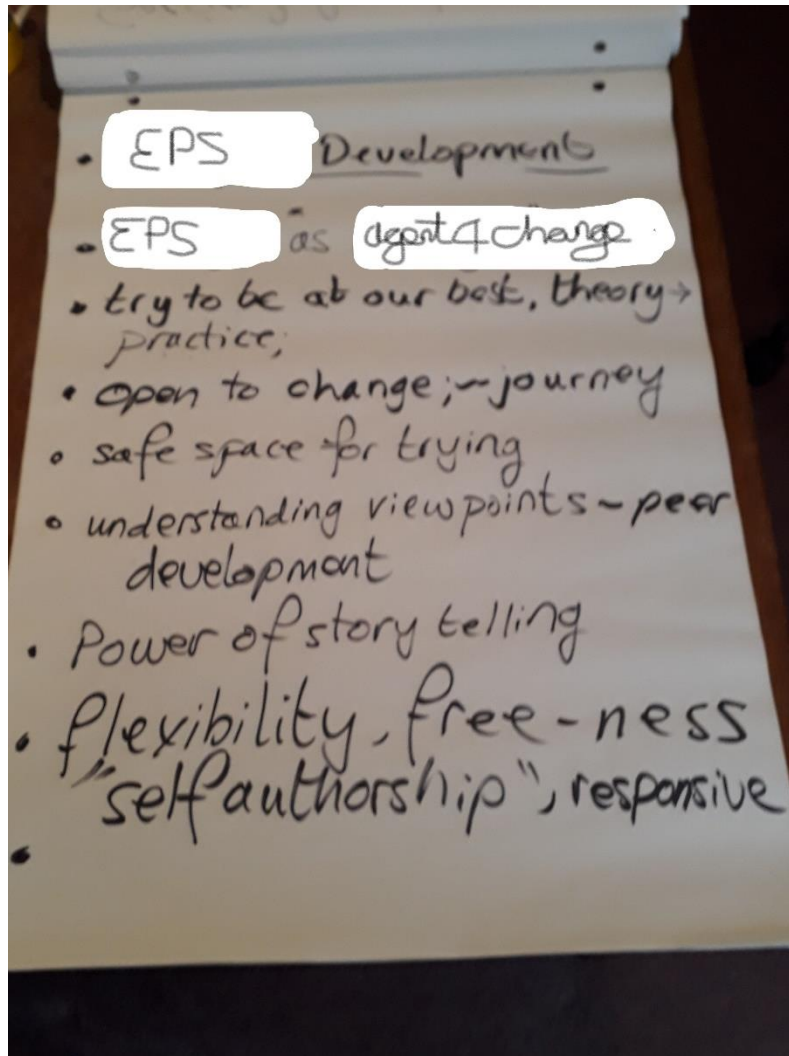 • EPS Development
• EPS as agent 4 change
• try to be at our best, theory →
practice;
• open to change; ~ journey
• safe space for trying
• understanding viewpoints ~ peer
development
• Power of story telling
• flexibility, free-ness
"self authorship", responsive
•